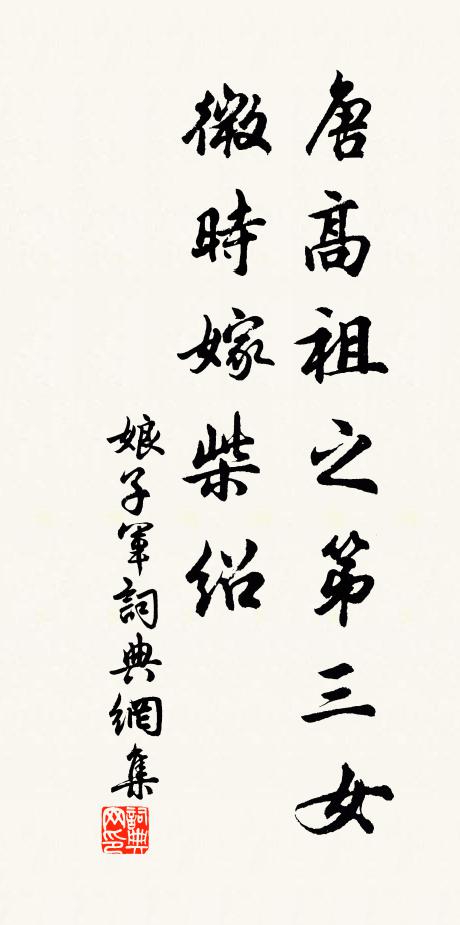 唐高祖之第三女
微時嫁柴紹
娘子軍詞典網集
詞典網印